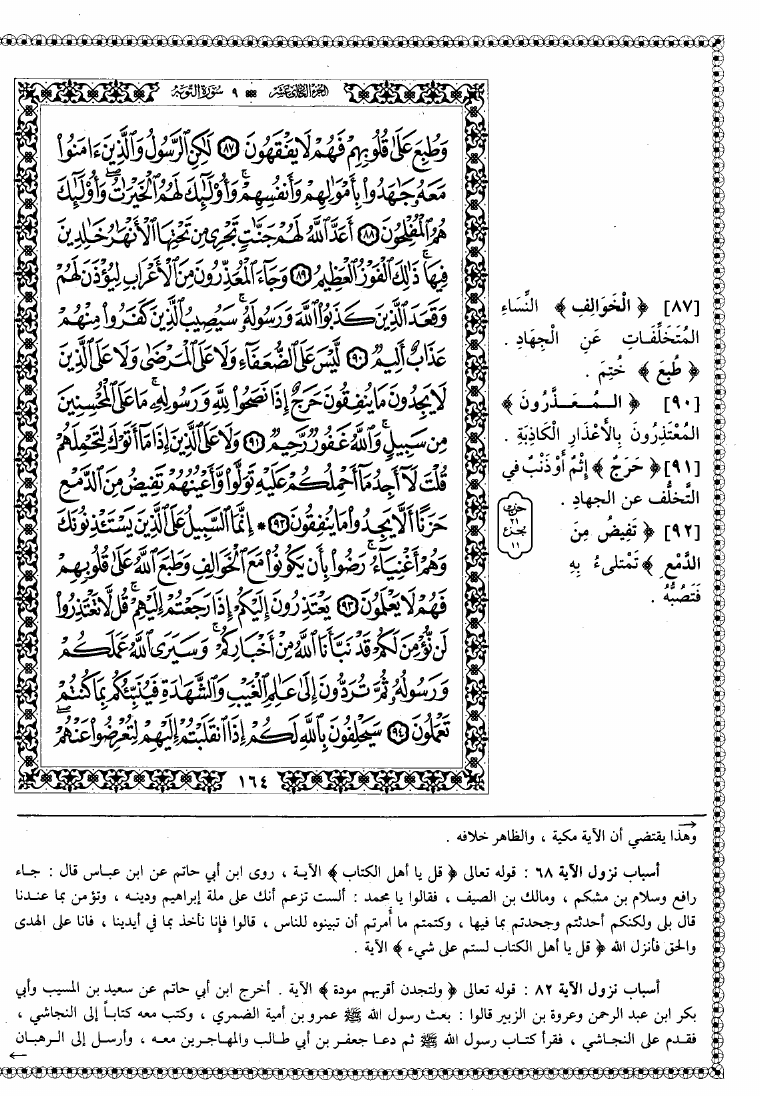 الجزء الحادي عشر ٩ سورة التوبة
وَطُبِعَ عَلَىٰ قُلُوبِهِمْ فَهُمْ لَا يَفْقَهُونَ ٨٧ لَٰكِنِ ٱلرَّسُولُ وَٱلَّذِينَ ءَامَنُوا۟
مَعَهُۥ جَٰهَدُوا۟ بِأَمْوَٰلِهِمْ وَأَنفُسِهِمْ ۚ وَأُو۟لَٰٓئِكَ لَهُمُ ٱلْخَيْرَٰتُ ۖ وَأُو۟لَٰٓئِكَ
هُمُ ٱلْمُفْلِحُونَ ٨٨ أَعَدَّ ٱللَّهُ لَهُمْ جَنَّٰتٍ تَجْرِى مِن تَحْتِهَا ٱلْأَنْهَٰرُ خَٰلِدِينَ
فِيهَا ۚ ذَٰلِكَ ٱلْفَوْزُ ٱلْعَظِيمُ ٨٩ وَجَآءَ ٱلْمُعَذِّرُونَ مِنَ ٱلْأَعْرَابِ لِيُؤْذَنَ لَهُمْ
وَقَعَدَ ٱلَّذِينَ كَذَبُوا۟ ٱللَّهَ وَرَسُولَهُۥ ۚ سَيُصِيبُ ٱلَّذِينَ كَفَرُوا۟ مِنْهُمْ
عَذَابٌ أَلِيمٌ ٩٠ لَّيْسَ عَلَى ٱلضُّعَفَآءِ وَلَا عَلَى ٱلْمَرْضَىٰ وَلَا عَلَى ٱلَّذِينَ
لَا يَجِدُونَ مَا يُنفِقُونَ حَرَجٌ إِذَا نَصَحُوا۟ لِلَّهِ وَرَسُولِهِۦ ۚ مَا عَلَى ٱلْمُحْسِنِينَ
مِن سَبِيلٍ ۚ وَٱللَّهُ غَفُورٌ رَّحِيمٌ ٩١ وَلَا عَلَى ٱلَّذِينَ إِذَا مَآ أَتَوْكَ لِتَحْمِلَهُمْ
قُلْتَ لَآ أَجِدُ مَآ أَحْمِلُكُمْ عَلَيْهِ تَوَلَّوا۟ وَّأَعْيُنُهُمْ تَفِيضُ مِنَ ٱلدَّمْعِ
حَزَنًا أَلَّا يَجِدُوا۟ مَا يُنفِقُونَ ٩٢ * إِنَّمَا ٱلسَّبِيلُ عَلَى ٱلَّذِينَ يَسْتَـْٔذِنُونَكَ
وَهُمْ أَغْنِيَآءُ ۚ رَضُوا۟ بِأَن يَكُونُوا۟ مَعَ ٱلْخَوَالِفِ وَطَبَعَ ٱللَّهُ عَلَىٰ قُلُوبِهِمْ
فَهُمْ لَا يَعْلَمُونَ ٩٣ يَعْتَذِرُونَ إِلَيْكُمْ إِذَا رَجَعْتُمْ إِلَيْهِمْ ۚ قُل لَّا تَعْتَذِرُوا۟
لَن نُّؤْمِنَ لَكُمْ قَدْ نَبَّأَنَا ٱللَّهُ مِنْ أَخْبَارِكُمْ ۚ وَسَيَرَى ٱللَّهُ عَمَلَكُمْ
وَرَسُولُهُۥ ثُمَّ تُرَدُّونَ إِلَىٰ عَٰلِمِ ٱلْغَيْبِ وَٱلشَّهَٰدَةِ فَيُنَبِّئُكُم بِمَا كُنتُمْ
تَعْمَلُونَ ٩٤ سَيَحْلِفُونَ بِٱللَّهِ لَكُمْ إِذَا ٱنقَلَبْتُمْ إِلَيْهِمْ لِتُعْرِضُوا۟ عَنْهُمْ ۖ
١٦٤
[٨٧] ﴿ الْخَوَالِفِ ﴾ النِّسَاءِ
المُتَخَلِّفَاتِ عَنِ الْجِهَادِ .
﴿ طُبِعَ ﴾ خُتِمَ .
[٩٠] ﴿ الـمُـعَـذِّرُونَ ﴾
المُعْتَذِرُونَ بِالأَعْذَارِ الْكَاذِبَةِ .
[٩١] ﴿ حَرَجٌ ﴾ إِثْمٌ أَوْ ذَنْبٌ في
التَّخلُّف عن الجهادِ .
[٩٢] ﴿ تَفِيضُ مِنَ
الدَّمْعِ ﴾ تَمْتَلىءُ بِهِ
فَتَصُبُّهُ .
حزب
٢١
جزء
١١
وهذا يقتضي أن الآية مكية ، والظاهر خلافه .
أسباب نزول الآية ٦٨ : قوله تعالى ﴿ قل يا أهل الكتاب ﴾ الآية ، روى ابن أبي حاتم عن ابن عباس قال : جاء
رافع وسلام بن مشكم ، ومالك بن الصيف ، فقالوا يا محمد : ألست تزعم أنك على ملة إبراهيم ودينه ، وتؤمن بما عندنا
قال بلى ولكنكم أحدثتم وجحدتم بما فيها ، وكتمتم ما أمرتم أن تبينوه للناس ، قالوا فإنا نأخذ بما في أيدينا ، فانا على الهدى
والحق فأنزل الله ﴿ قل يا أهل الكتاب لستم على شيء ﴾ الآية .
أسباب نزول الآية ٨٢ : قوله تعالى ﴿ ولتجدن أقربهم مودة ﴾ الآية . أخرج ابن أبي حاتم عن سعيد بن المسيب وأبي
بكر ابن عبد الرحمن وعروة بن الزبير قالوا : بعث رسول الله ﷺ عمرو بن أمية الضمري ، وكتب معه كتاباً إلى النجاشي ،
فقدم على النجاشي ، فقرأ كتاب رسول الله ﷺ ثم دعا جعفر بن أبي طالب والمهاجرين معه ، وأرسل إلى الرهبان